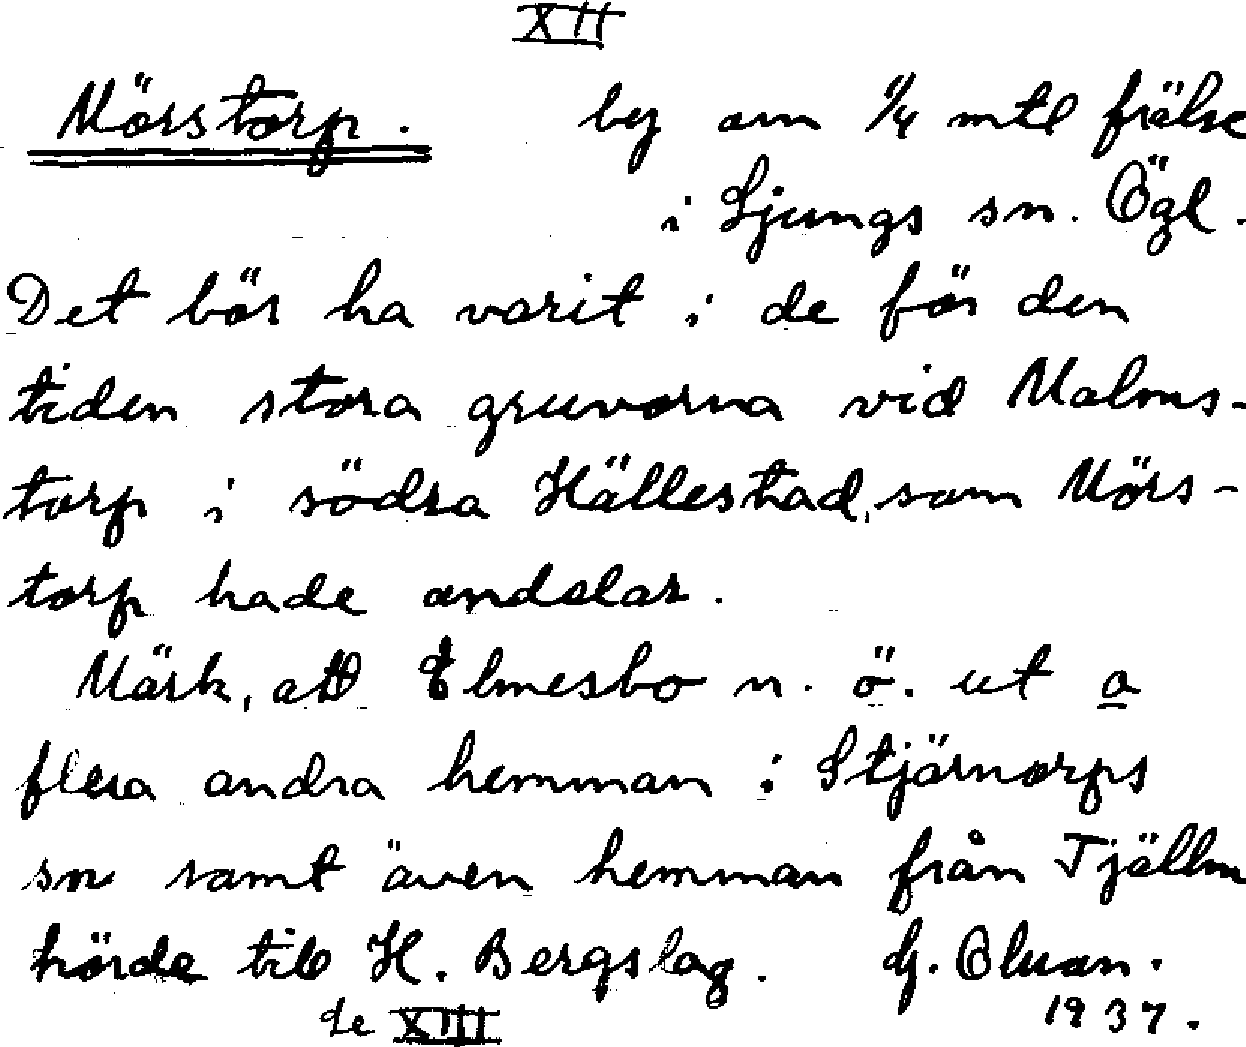 XII
Mörstorp. by om 1/4 mtl frälse
i Ljungs sn. Ögl.
Det bör ha varit i de för den
tiden stora gruvorna vid Malms-
torp i södra Hällestad, som Mörs-
torp hade andelar.
Märk, att Elmesbo n. ö. ut o
flera andra hemman i Stjärnorps
sn samt även hemman från Tjällm
hörde till H. Bergslag. G.
1937.
se XIII